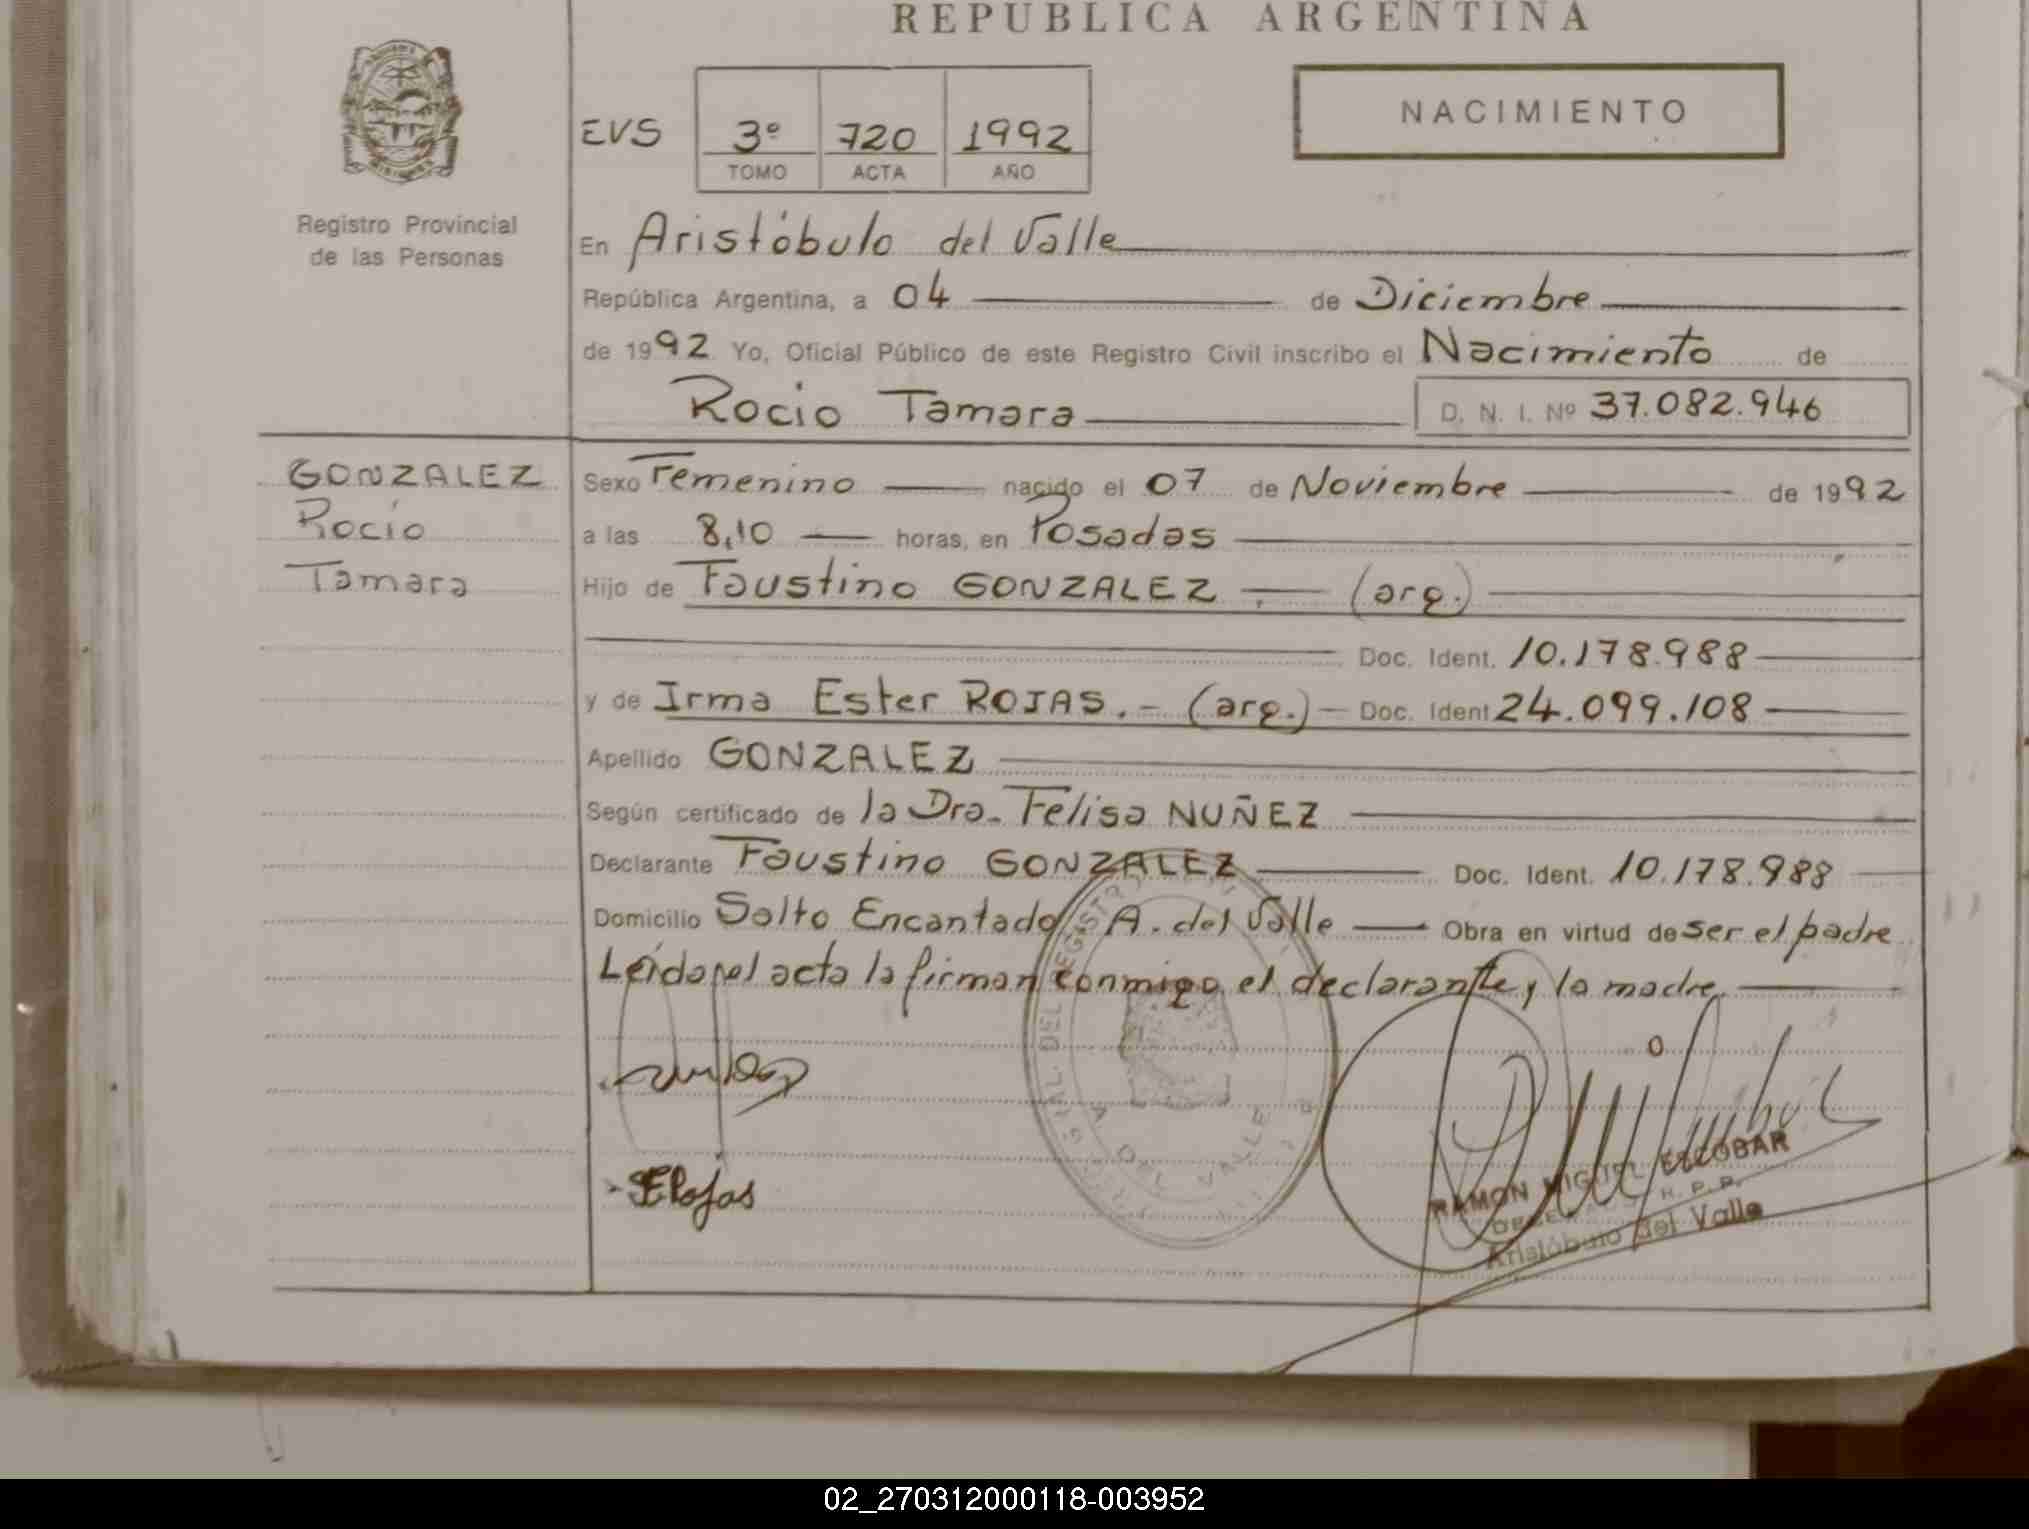 REPUBLICA ARGENTINA
NACIMIENTO
EVS 3º 720 1992
TOMO ACTA AÑO
Registro Provincial
de las Personas
En Aristóbulo del Valle
República Argentina, a 04 de Diciembre
de 1992 Yo, Oficial Público de este Registro Civil inscribo el Nacimiento de
Rocio Tamara D. N. I. Nº 37.082.946
GONZALEZ
Rocío
Tamara
Sexo Femenino nacido el 07 de Noviembre de 1992
a las 8,10 horas, en Posadas
Hijo de Faustino GONZALEZ.- (arg.)
Doc. Ident. 10.178.988
y de Irma Ester ROJAS.- (arg.) Doc. Ident 24.099.108
Apellido GONZALEZ
Según certificado de la Dra. Felisa NUÑEZ
Declarante Faustino GONZALEZ Doc. Ident. 10.178.988
Domicilio Salto Encantado A. del Valle Obra en virtud de ser el padre
Leída el acta la firman conmigo el declarante y la madre.
DEL REGISTRO
A DEL VALLE
ERojas
RAMON MIGUEL ESCOBAR
R. P. P.
Aristóbulo del Valle
02_270312000118-003952